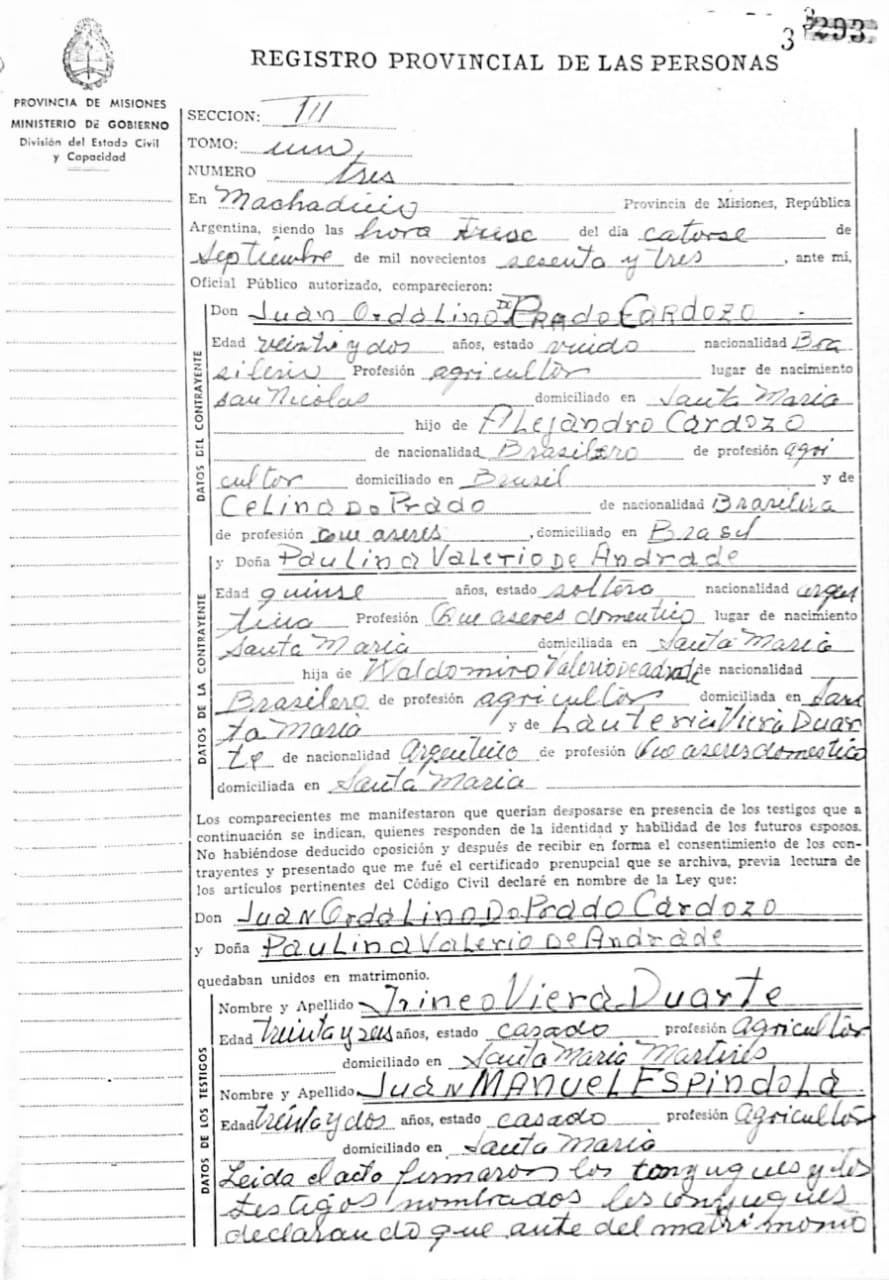 3
3
293.
REGISTRO PROVINCIAL DE LAS PERSONAS
PROVINCIA DE MISIONES
MINISTERIO DE GOBIERNO
División del Estado Civil
y Capacidad
SECCION: III
TOMO: un
NUMERO tres
En Machadiño Provincia de Misiones, República
Argentina, siendo las hora trese del dia catorse de
Septiembre de mil novecientos sesenta y tres, ante mi,
Oficial Público autorizado, comparecieron:
DATOS DEL CONTRAYENTE
Don Juan OrdaLino De Prado Cardozo
Edad veinti y dos años, estado viudo nacionalidad Bra
silerio Profesión agricultor lugar de nacimiento
san Nicolas domiciliado en Santa Maria
hijo de ALejandro Cardozo
de nacionalidad Brasilero de profesión agri
cultor domiciliado en Brasil y de
CeLina Do Prado de nacionalidad Brasilera
de profesión que aseres, domiciliado en Brasil
y Doña PauLina VaLerio De Andrade
DATOS DE LA CONTRAYENTE
Edad quinse años, estado soltera nacionalidad argen
tina Profesión Que aseres domentico lugar de nacimiento
Santa Maria domiciliada en Santa Maria
hija de Waldomiro Valerio de adrade de nacionalidad
Brasilero de profesión agricultor domiciliada en San
ta Maria y de Lauteria Viera Duar
te de nacionalidad Argentino de profesión Que aseres domestico
domiciliada en Santa Maria
Los comparecientes me manifestaron que querían desposarse en presencia de los testigos que a
continuación se indican, quienes responden de la identidad y habilidad de los futuros esposos.
No habiéndose deducido oposición y después de recibir en forma el consentimiento de los con-
trayentes y presentado que me fué el certificado prenupcial que se archiva, previa lectura de
los artículos pertinentes del Código Civil declaré en nombre de la Ley que:
Don Juan OrdaLino Do Prado Cardozo
y Doña PauLina VaLerio De Andrade
quedaban unidos en matrimonio.
DATOS DE LOS TESTIGOS
Nombre y Apellido Irineo Viera Duarte
Edad treinta y seis años, estado casado profesión agricultor
domiciliado en Santa Maria Martires
Nombre y Apellido Juan Manuel Espindola
Edad treinta y dos años, estado casado profesión agricultor
domiciliado en Santa Maria
Leida el acto firmaron los conyugues y los
testigos nombrados los conyugues
declarando que ante del matrimonio